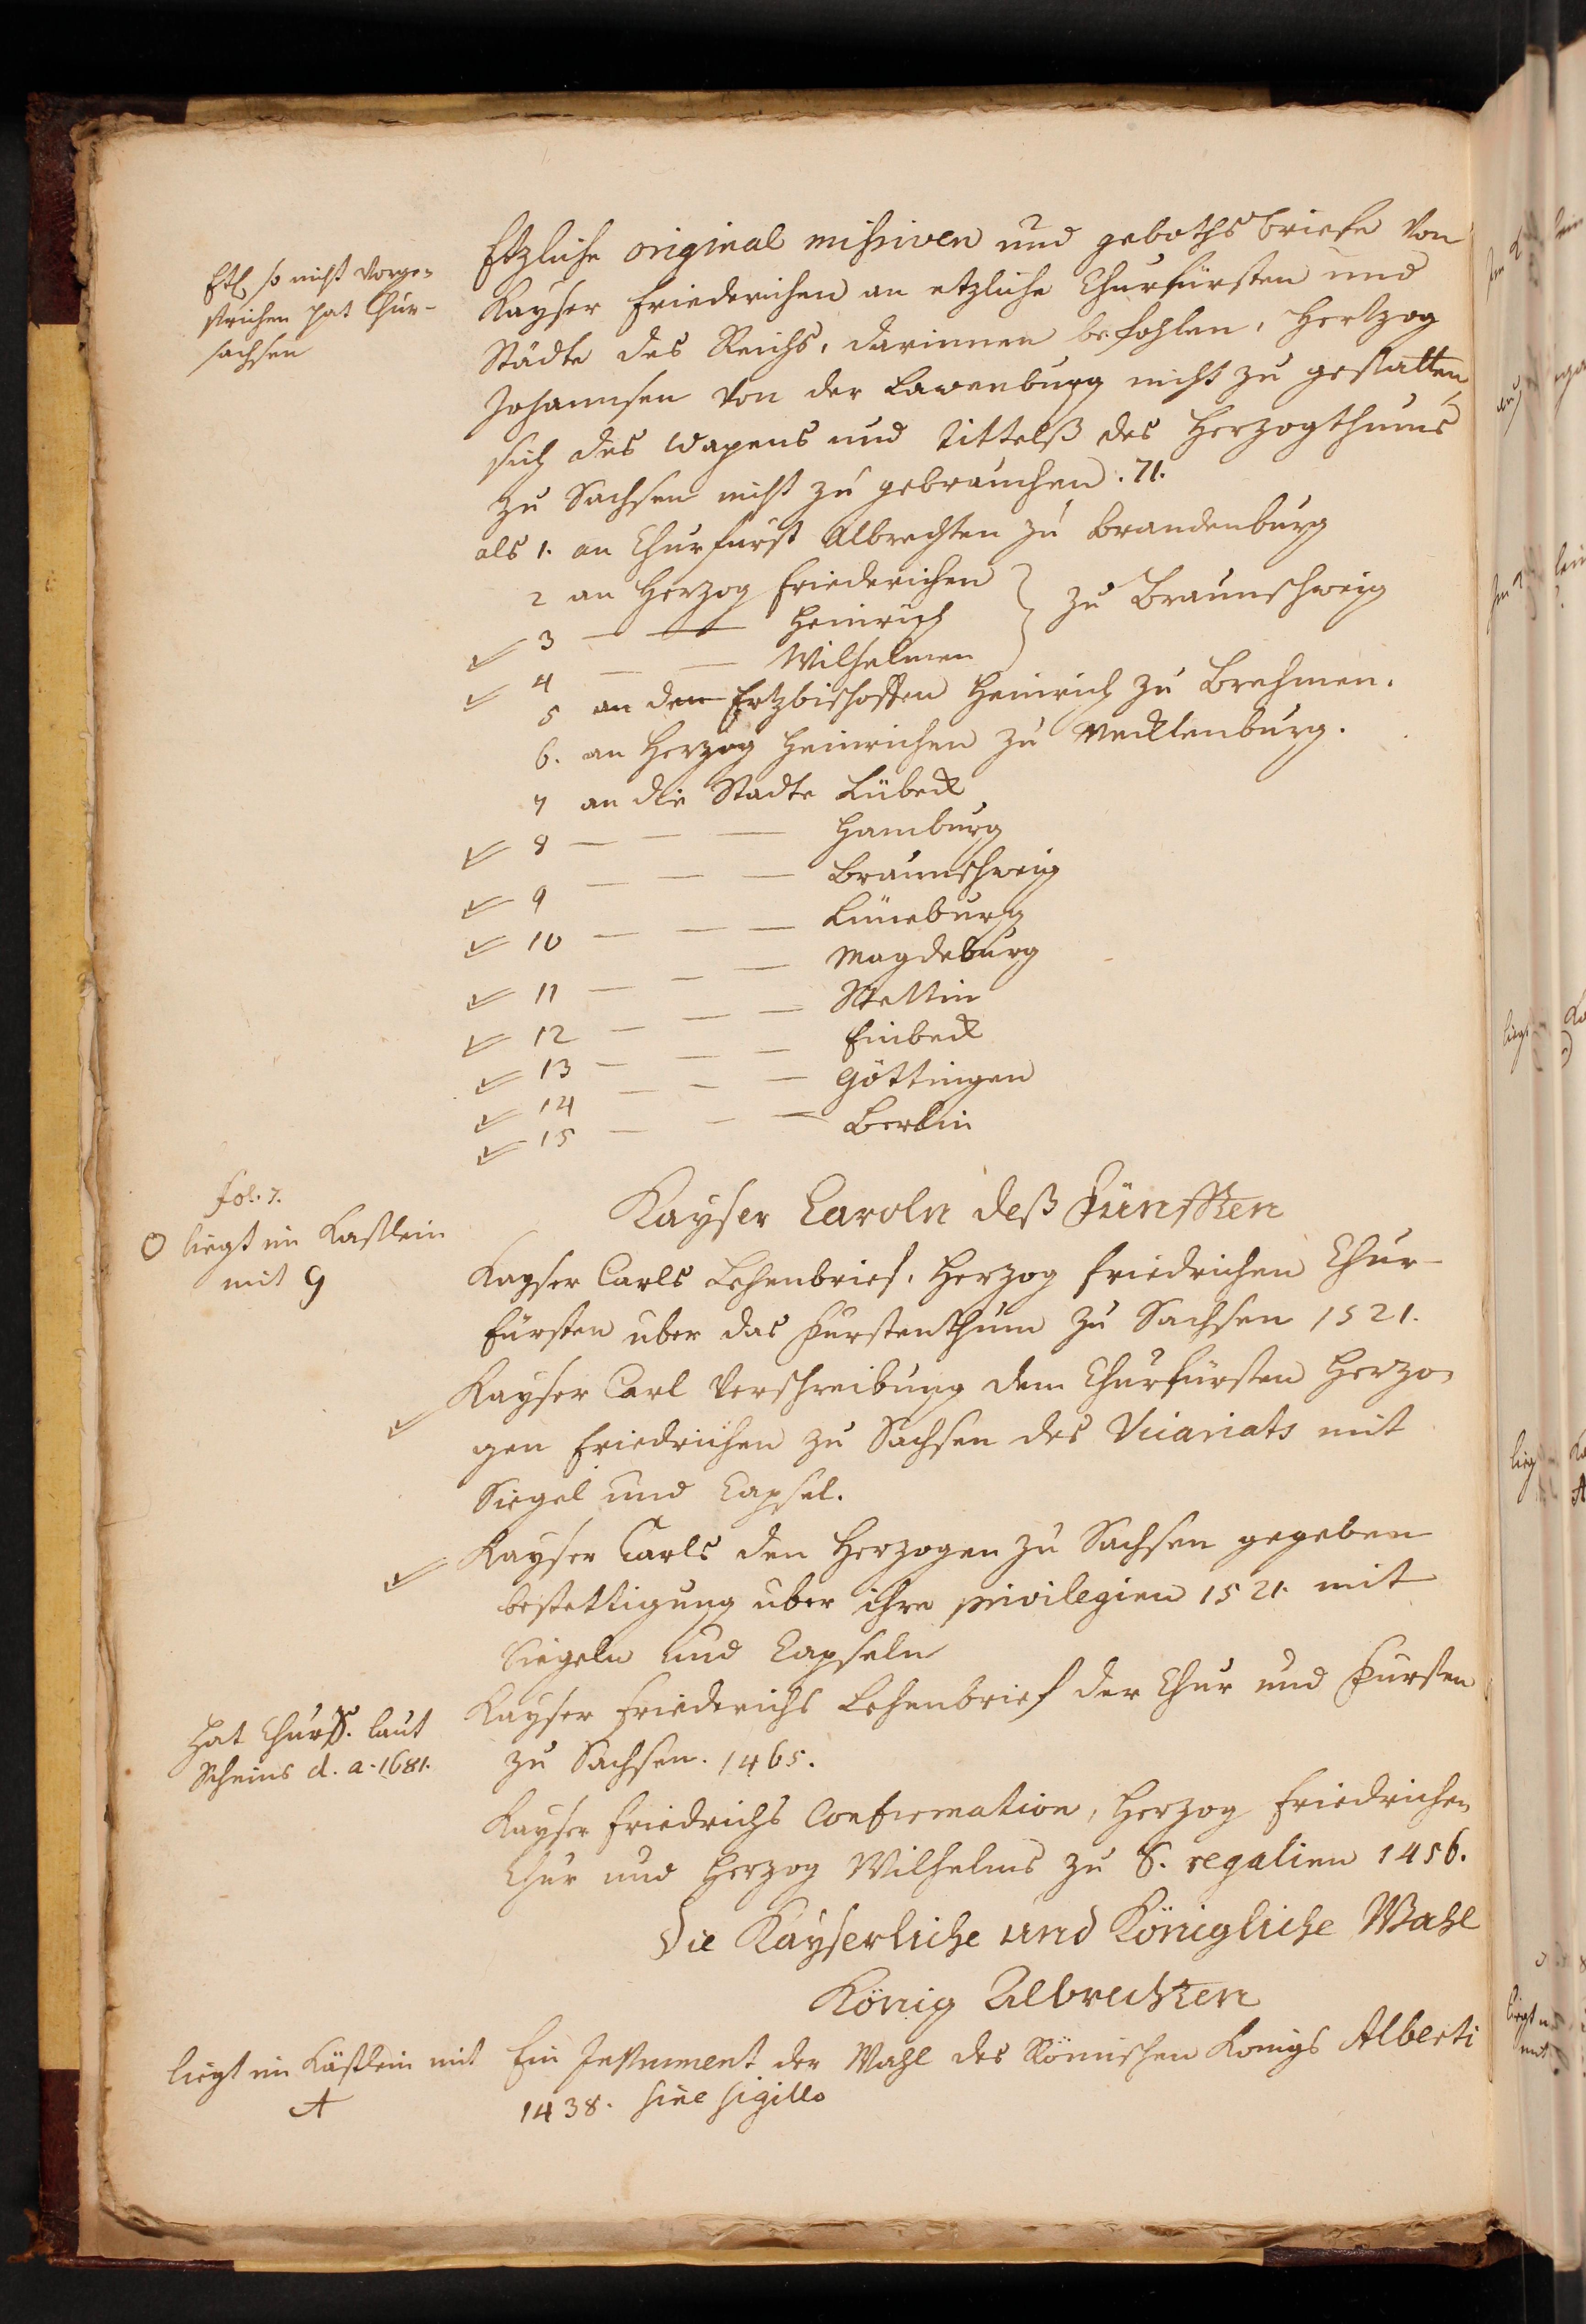 Etzliche original mißiven und gebothsbriefe von
Etl. so nicht vorge=
strichen hat Chur-
sachsen
Kayser Friederichen an etzliche Churfürsten und
Städte des Reichs, darinnen befohlen, Hertzog
Johannsen von der Lawenburg nicht zu gestatten,
sich des Wapens und Tittelß des Herzogthums
zu Sachsen nicht zu gebrauchen. 71.
als 1. an Churfürst Albrechten zu Brandenburg
2 an Herzog Friederichen
3 — — Heinrich
zu Braunschweig
4 — — Wilhelmen
5 an den Ertzbischoffen Heinrich zu Brehmen.
6. an Herzog Heinrichen zu Mecklenburg.
7 an die Stadte Lübeck
8 — — — Hamburg
9 — — — Braunschweig
10 — — — Lüneburg
11 — — — Magdeburg
12 — — — Stettin
13 — — — Einbeck
14 — — — Göttingen
15 — — — Berlin
Kayser Caroln deß Fünfften
fol. 7.
O liegt im Kastlein
mit G
Kayser Carls Lehenbrief, Herzog Friedrichen Chur-
fürsten uber das Furstenthum zu Sachsen 1521.
Kayser Carl Verschreibung dem Churfürsten Herzo=
gen Friedrichen zu Sachsen des Vicariats mit
Siegel und Capsel.
Kayser Carls den Herzogen zu Sachsen gegeben
bestettigung uber ihre privilegien 1521. mit
Siegeln und Capseln
Kayser Friederichs Lehenbrief der Chur und Fursten
Hat ChurS. laut
Scheins d. a. 1681.
zu Sachsen. 1465.
Kayser Friedrichs Confirmation, Herzog Friedrichen
Chur und Herzog Wilhelms zu S. regalien 1456.
Die Kayserliche und Königliche Wahl
König Albrechten
liegt im Kästlein mit
A
Ein Instrument der Wahl des Römischen Konigs Alberti
1438. sine sigillo